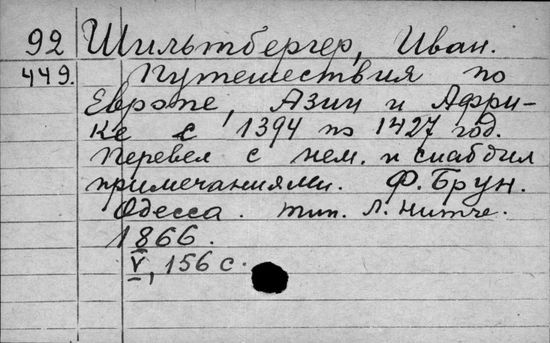 92 Шильтбергер, Иван.
449. Путешествия по
Европе, Азии и Афри-
ке с 1394 по 1427 год.
Перевел с нем. и снабдил
примечаниями. Ф. Брун.
Одесса. тип. Л. Нитче.
1866.
V, 156 с.